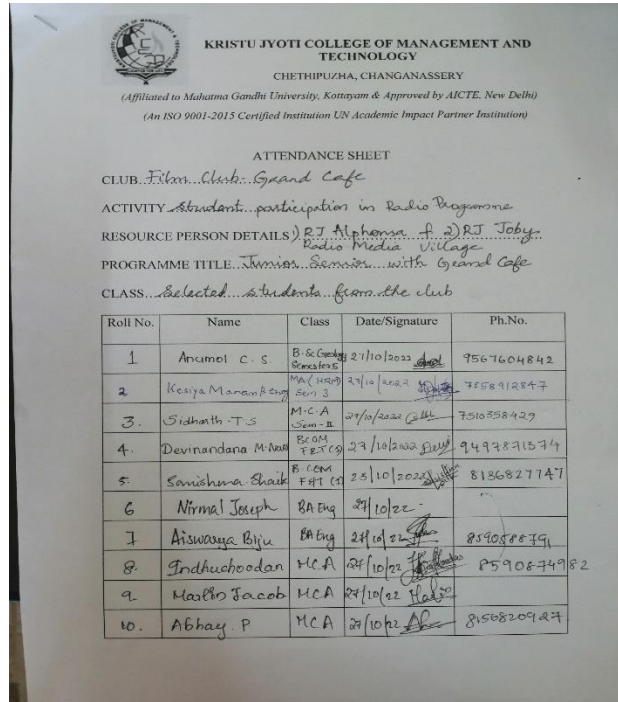 KRISTU JYOTI COLLEGE OF MANAGEMENT AND
TECHNOLOGY
CHETHIPUZHA, CHANGANASSERY
(Affiliated to Mahatma Gandhi University, Kottayam & Approved by AICTE, New Delhi)
(An ISO 9001-2015 Certified Institution UN Academic Impact Partner Institution)
ATTENDANCE SHEET
CLUB Film Club - Grand Cafe
ACTIVITY Student participation in Radio Programme
RESOURCE PERSON DETAILS 1) RJ Alphonsa & 2) RJ Joby
Radio Media Village
PROGRAMME TITLE Junior Senior with Grand Cafe
CLASS Selected students from the club
Roll No. Name Class Date/Signature Ph.No.
1 Anumol C. S. B.Sc Geology Semester 5 27/10/2022 9567604842
2 Kesiya MA (HRM) Sem 3 27/10/2022 7558912847
3. Sidharth T.S M.C.A Sem-II 27/10/2022 7510358429
4. Devinandana M. BCOM 27/10/2022 9497871374
5. Sanishma Shaik B.COM 25/10/2022 8136827747
6 Nirmal Joseph BA Eng 27/10/22
7 Aiswarya Biju BA Eng 27/10/22 859058879,
8. Indhuchoodan MCA 27/10/22 8590874982
9. Marlin Jacob MCA 27/10/22
10. Abhay. P MCA 27/10/22 8156820927